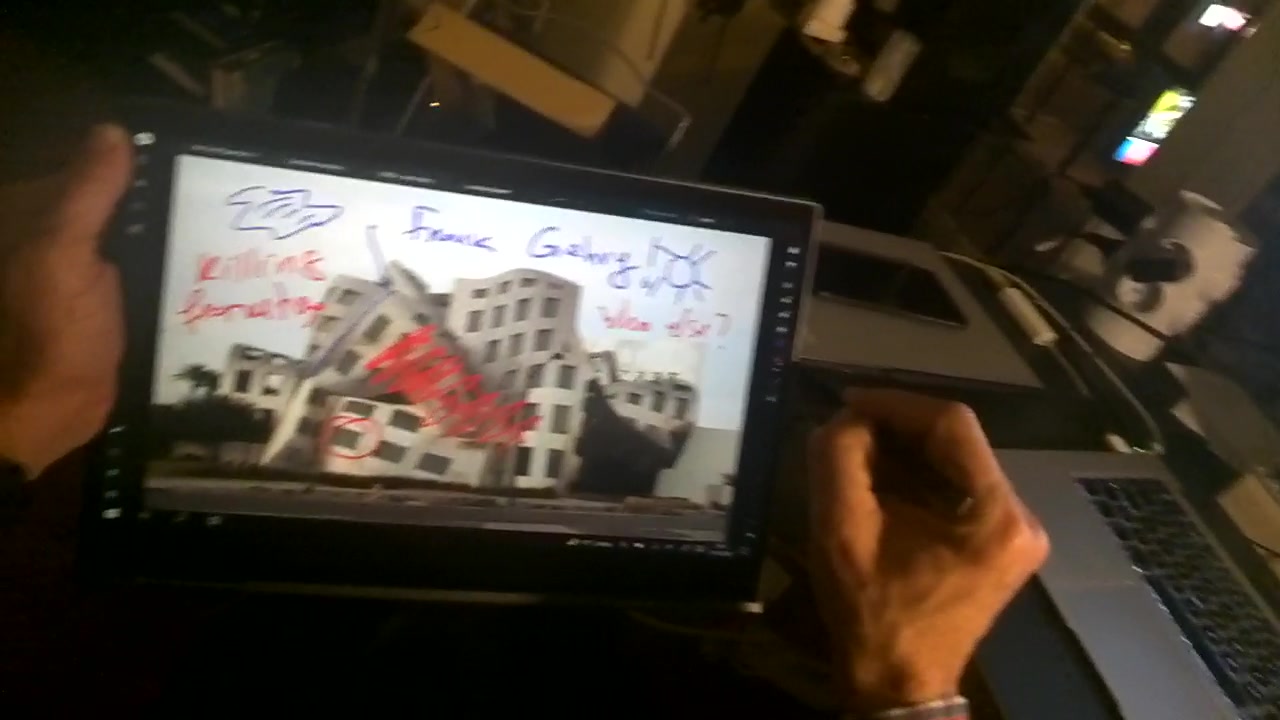 Frank Gehry!
killing
formality
who else?